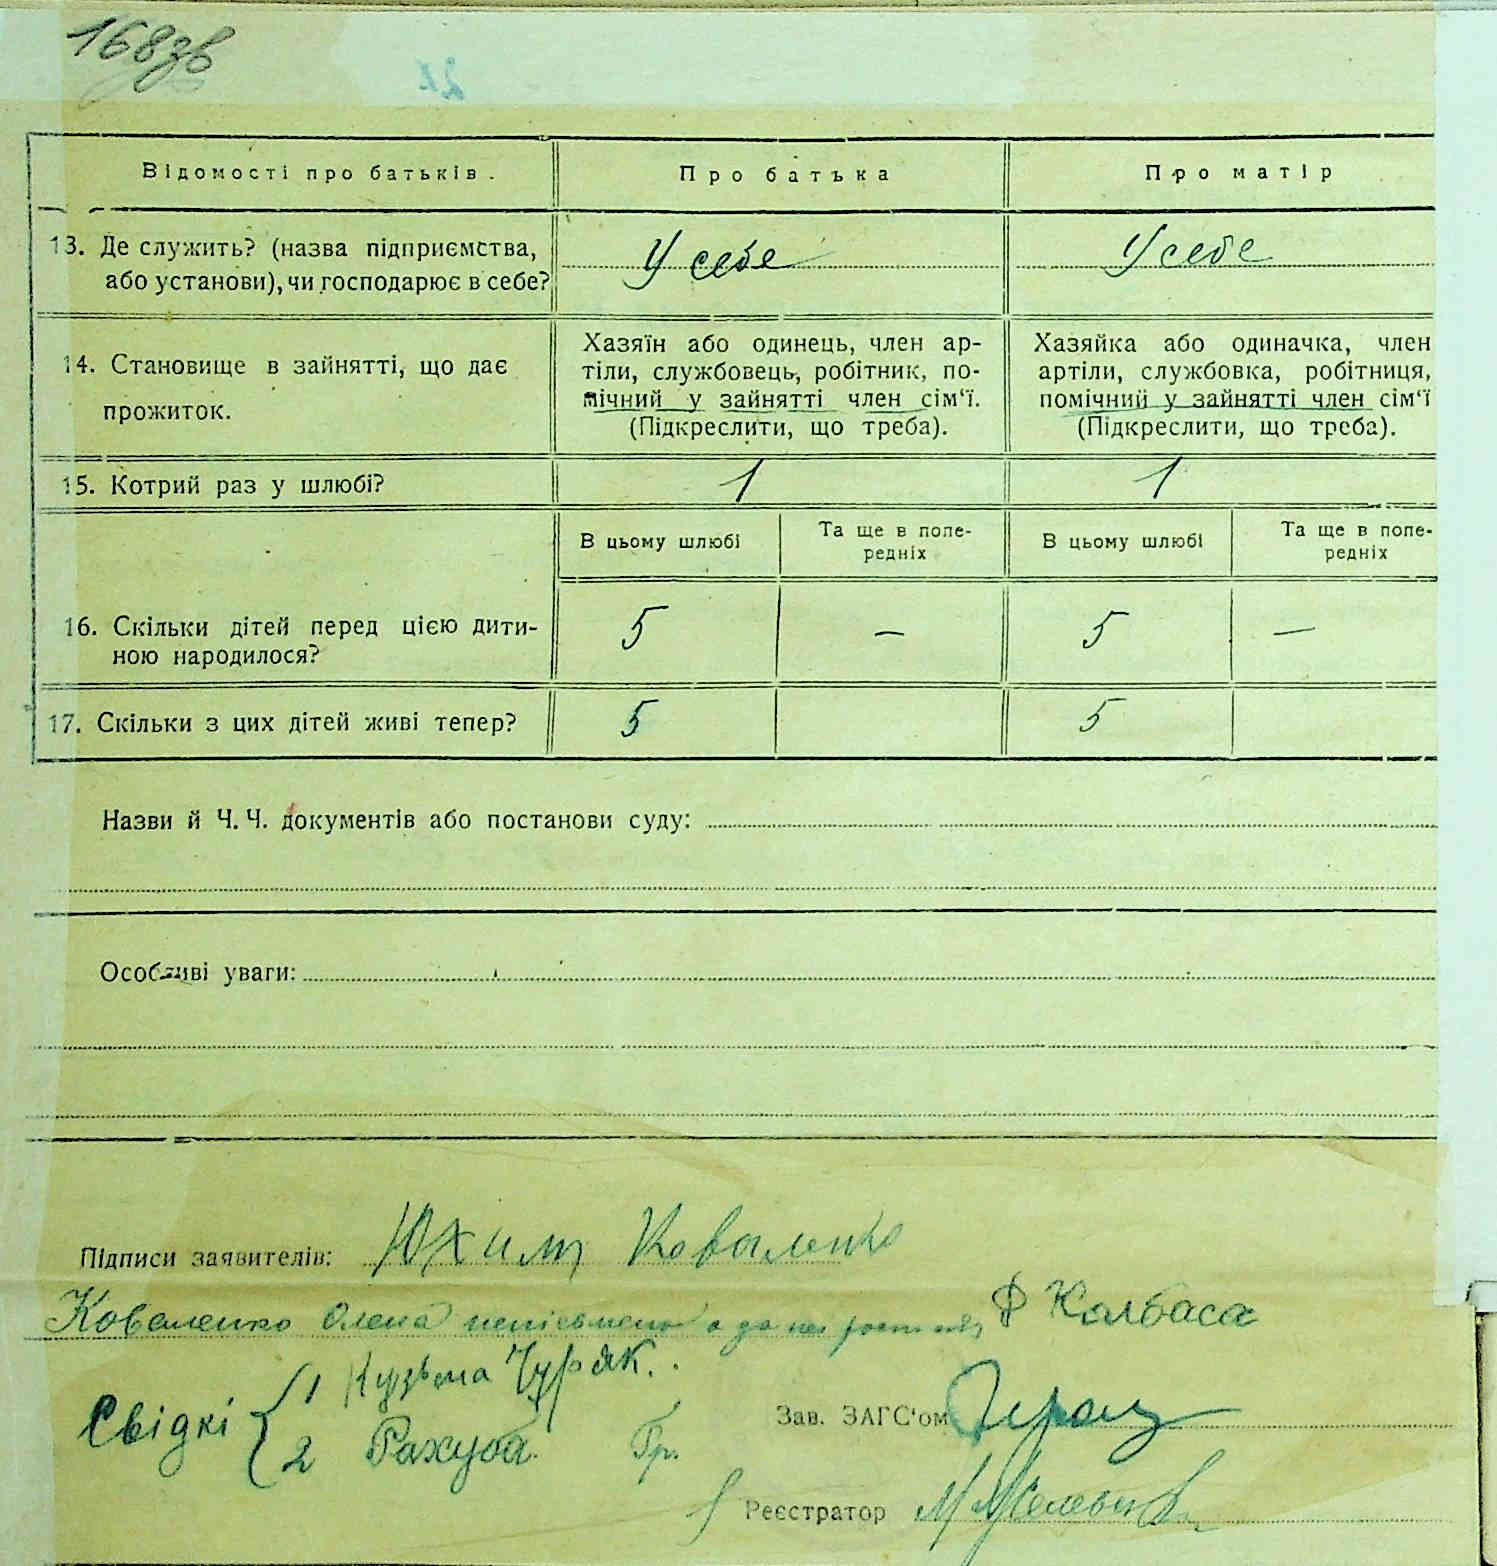 168зв
Відомості про батьків.
Про батька
Про матір
13. Де служить? (назва підприємства,
або установи), чи господарює в себе?
У себе
У себе
14. Становище в зайнятті, що дає
прожиток.
Хазяїн або одинець, член ар-
тіли, службовець, робітник, по-
мічний у зайнятті член сім‘ї.
(Підкреслити, що треба).
Хазяйка або одиначка, член
артіли, службовка, робітниця,
помічний у зайнятті член сім‘ї
(Підкреслити, що треба).
15. Котрий раз у шлюбі?
1
1
В цьому шлюбі
Та ще в попе-
редніх
В цьому шлюбі
Та ще в попе-
редніх
16. Скільки дітей перед цією дити-
ною народилося?
5 — 5 —
17. Скільки з цих дітей живі тепер?
5 5
Назви й Ч. Ч. документів або постанови суду:
Особливі уваги:
Підписи заявителів: Юхим Коваленко
Коваленко Олена неписьмена а за неї Ф Калбаса
Свідкі { 1 Кузьма Чуряк.
2 Рахуба Гр.
Зав. ЗАГС'ом
Реєстратор М